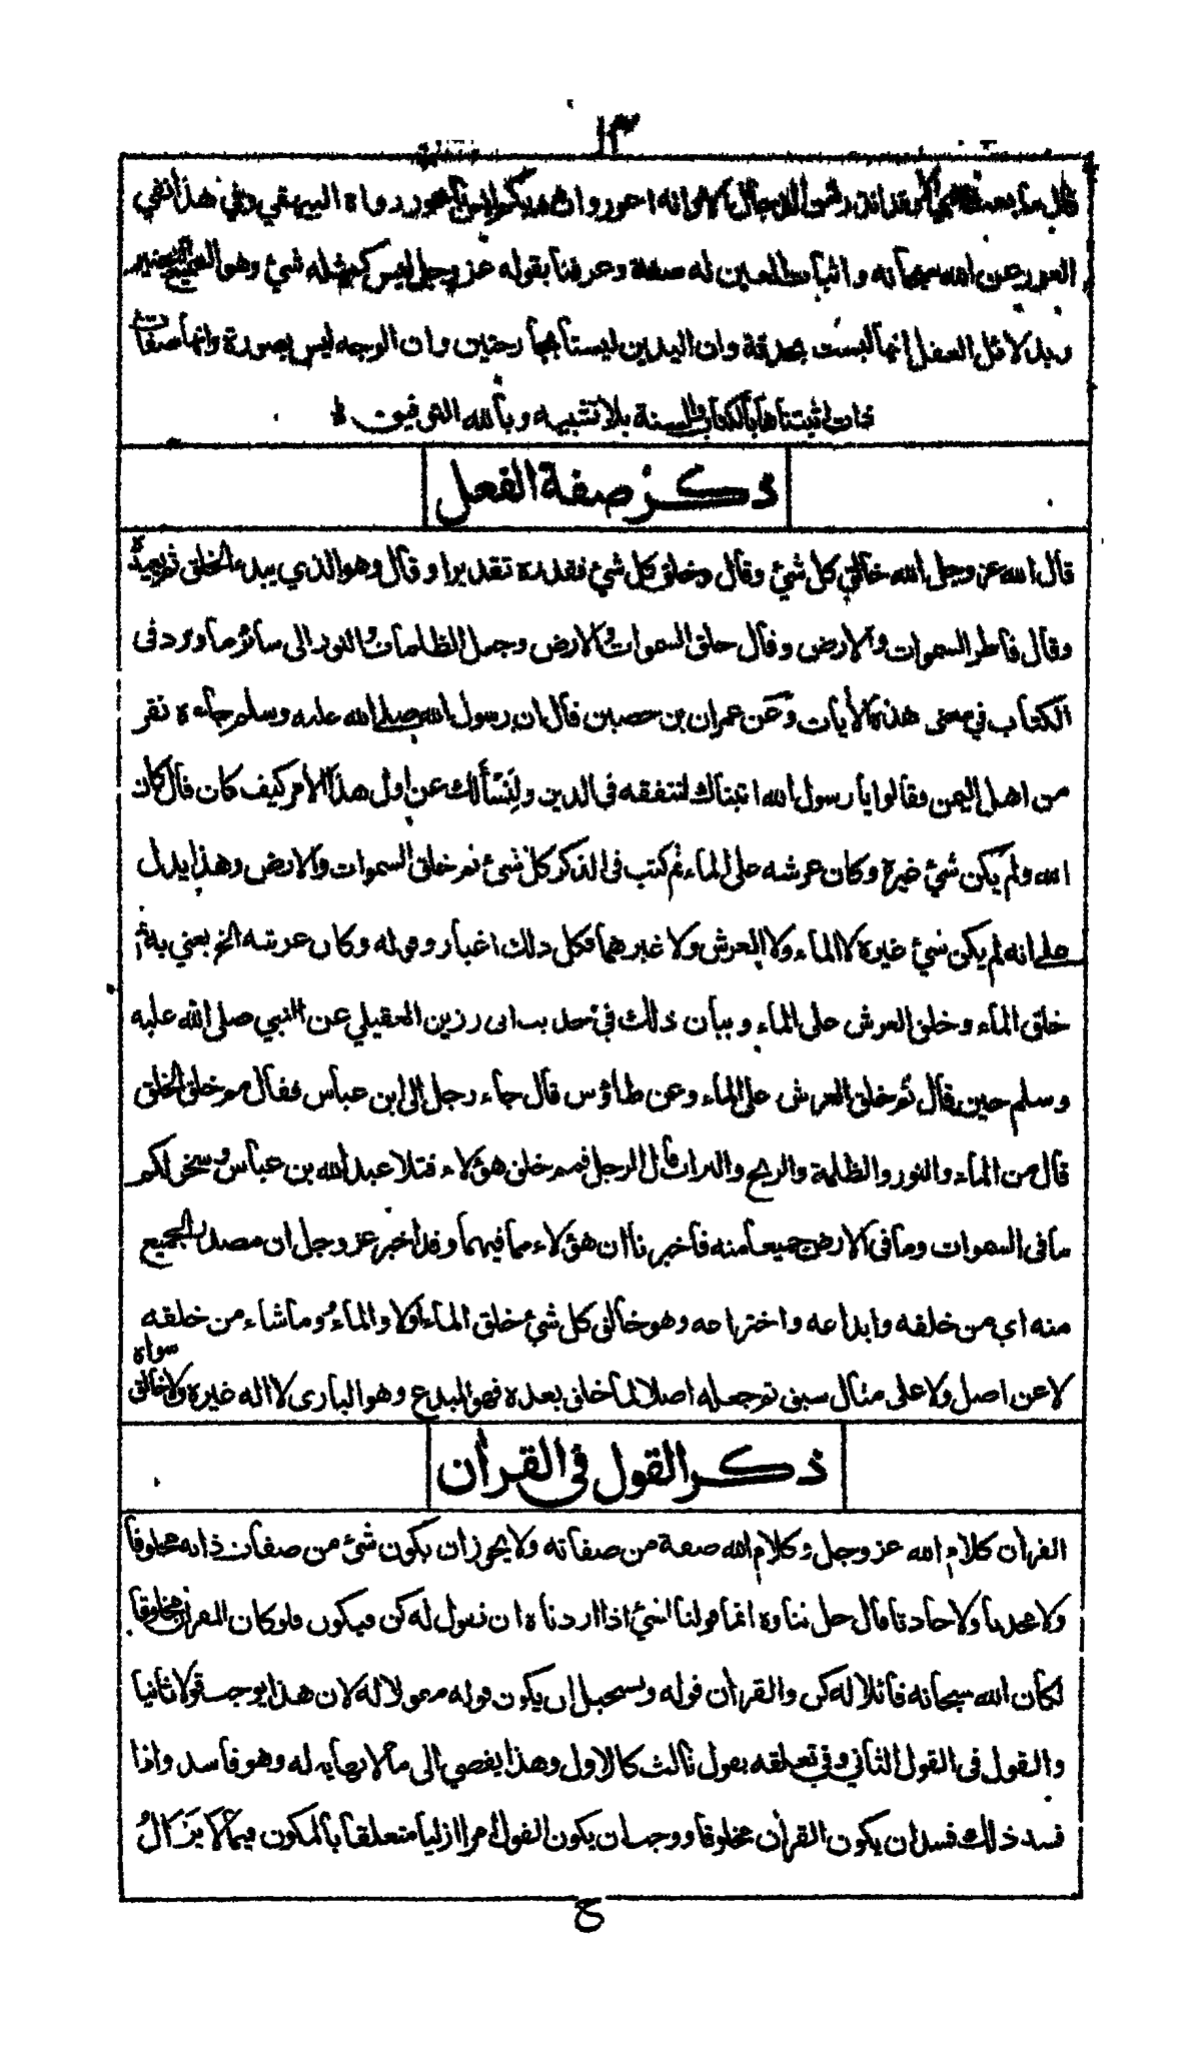 ١٣
قال ما بعث نبي الا وقد انذر امته الدجال الا وانه اعور وان ربكم ليس باعور رواه البيهقي وفي هذا نفي
العور عن الله سبحانه واثبات العين له صفة وعرفنا بقوله عز وجل ليس كمثله شئ وهو السميع البصير
وبدلائل العقل انها ليست بحدقة وان اليدين ليستا بجارحتين وان الوجه ليس بصورة وانها صفات
ذات اثبتناها بالكتاب والسنة بلا تشبيه وبالله التوفيق
ذكر صفة الفعل
قال الله عز وجل الله خالق كل شئ وقال وخلق كل شئ فقدره تقديرا وقال وهو الذي يبدء الخلق ثم يعيده
وقال فاطر السموات والارض وقال خلق السموات والارض وجعل الظلمات والنور الى سائر ما ورد فى
الكتاب في معنى هذه الأيات وعن عمران بن حصين قال ان رسول الله صلى الله عليه وسلم جاءه نفر
من اهل اليمن وقالوا يا رسول الله اتيناك لنتفقه فى الدين ولنسألك عن اول هذا الأمر كيف كان قال كان
الله ولم يكن شئ غيره وكان عرشه على الماء ثم كتب فى الذكر كل شئ ثم خلق السموات والارض وهذا يدل
على انه لم يكن شئ غيره لا الماء ولا العرش ولا غيرهما فكل ذلك اغيار وقوله وكان عرشه الخ يعني به ثم
خلق الماء وخلق العرش على الماء وبيان ذلك في حديث ابى رزين العقيلي عن النبي صلى الله عليه
وسلم حين قال ثم خلق العرش على الماء وعن طاؤس قال جاء رجل الى ابن عباس فقال مم خلق الخلق
قال من الماء والنور والظلمة والريح والتراب قال الرجل فمم خلق هؤلاء فتلا عبد الله بن عباس وسخر لكم
ما فى السموات وما فى الارض جميعا منه فاخبرنا ان هؤلاء مما فيهما وقد اخبر عز وجل ان مصدر الجميع
منه اي من خلقه وابداعه واختراعه وهو خالق كل شئ خلق الماء اولا والماء وما شاء من خلقه
لا عن اصل ولا على مثال سبق ثم جعله اصلا لما خلق بعده فهو المبدع وهو البارى لا اله غيره ولا خالق سواه
ذكر القول فى القرأن
القرأن كلام الله عز وجل وكلام الله صفة من صفاته ولا يجوز ان يكون شئ من صفات ذاته مخلوقا
ولا محدثا ولا حادثا قال جل ثناوه انما قولنا لشئ اذا اردناه ان نقول له كن فيكون فلو كان القرأن مخلوقا
لكان الله سبحانه قائلا له كن والقرأن قوله ويستحيل ان يكون قوله مقولا له لان هذا يوجب قولا ثانيا
والقول فى القول الثاني وفي تعلقه بقول ثالث كالاول وهذا يفضي الى ما لا نهاية له وهو فاسد واذا
فسد ذلك فسد ان يكون القرأن مخلوقا ووجب ان يكون القول امرا ازليا متعلقا بالمكون فيما لا يزال
ع